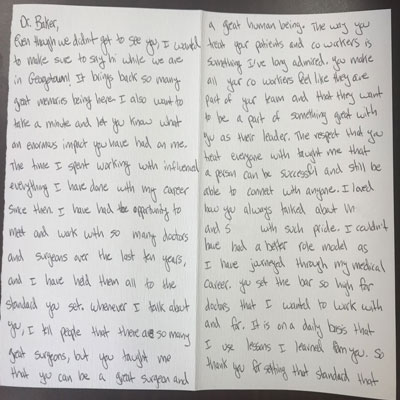 Dr. Baker,
Even though we didn't get to see you, I wanted
to make sure to say hi while we are
in Georgetown! It brings back so many
great memories being here. I also want to
take a minute and let you know what
an enormous impact you have had on me.
The time I spent working with influenced
everything I have done with my career
since then. I have had the opportunity to
meet and work with so many doctors
and surgeons over the last ten years,
and I have held them all to the
standard you set. Whenever I talk about
you, I tell people that there are so many
great surgeons, but you taught me
that you can be a great surgeon and
a great human being. The way you
treat your patients and co workers is
something I've long admired. you make
all your co workers feel like they are
part of your team and that they want
to be a part of something great with
you as their leader. The respect that you
treat everyone with taught me that
a person can be successful and still be
able to connect with anyone. I loved
how you always talked about
and S with such pride. I couldn't
have had a better role model as
I have journeyed through my medical
career. you set the bar so high for
doctors that I wanted to work with
and for. It is on a daily basis that
I use lessons I learned from you. So
thank you for setting that standard that